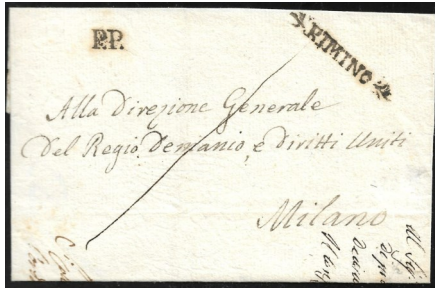 P.P.
RIMINO
Alla Direzione Generale
Del Regio Demanio, e Diritti Uniti
Milano